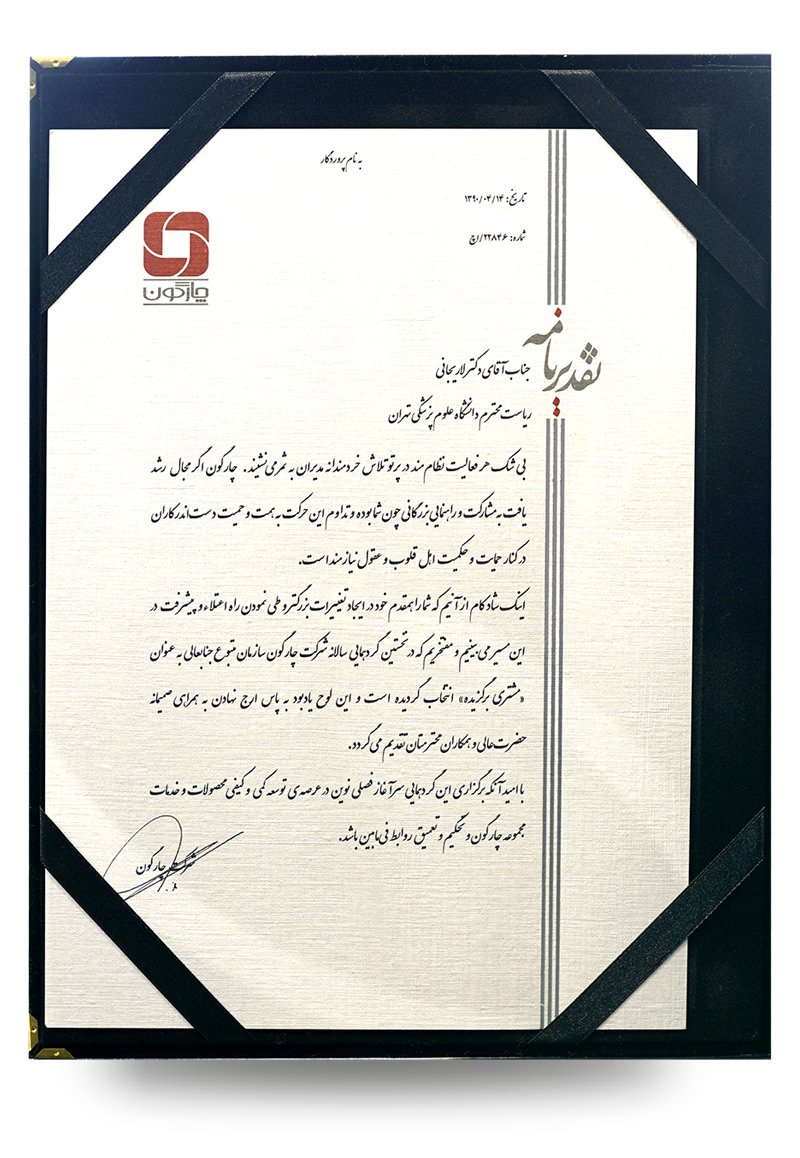 به نام پروردگار
تاریخ: ۱۳۹۰/۰۴/۱۴
شماره: ۲۲۸۴۶/اچ
چارگون
تقدیرنامه
جناب آقای دکتر لاریجانی
ریاست محترم دانشگاه علوم پزشکی تهران
بی شک هر فعالیت نظام مند در پرتو تلاش خردمندانه مدیران به ثمر می نشیند. چارگون اگر مجال رشد
یافت به مشارکت و راهنمایی بزرگانی چون شما بوده و تداوم این حرکت به همت و حمیت دست اندرکاران
در کنار حمایت و حکمیت اهل قلوب و عقول نیازمند است.
اینک شادکام از آنیم که شما را همقدم خود در ایجاد تغییرات بزرگتر و طی نمودن راه اعتلاء و پیشرفت در
این مسیر می بینیم و مفتخریم که در نخستین گردهمایی سالانه شرکت چارگون سازمان متبوع جنابعالی به عنوان
«مشتری برگزیده» انتخاب گردیده است و این لوح یادبود به پاس ارج نهادن به همراهی صمیمانه
حضرت عالی و همکاران محترمتان تقدیم می گردد.
با امید آنکه برگزاری این گردهمایی سرآغاز فصلی نوین در عرصه ی توسعه کمی و کیفی محصولات و خدمات
مجموعه چارگون و تحکیم و تعمیق روابط فی مابین باشد.
شرکت چارگون